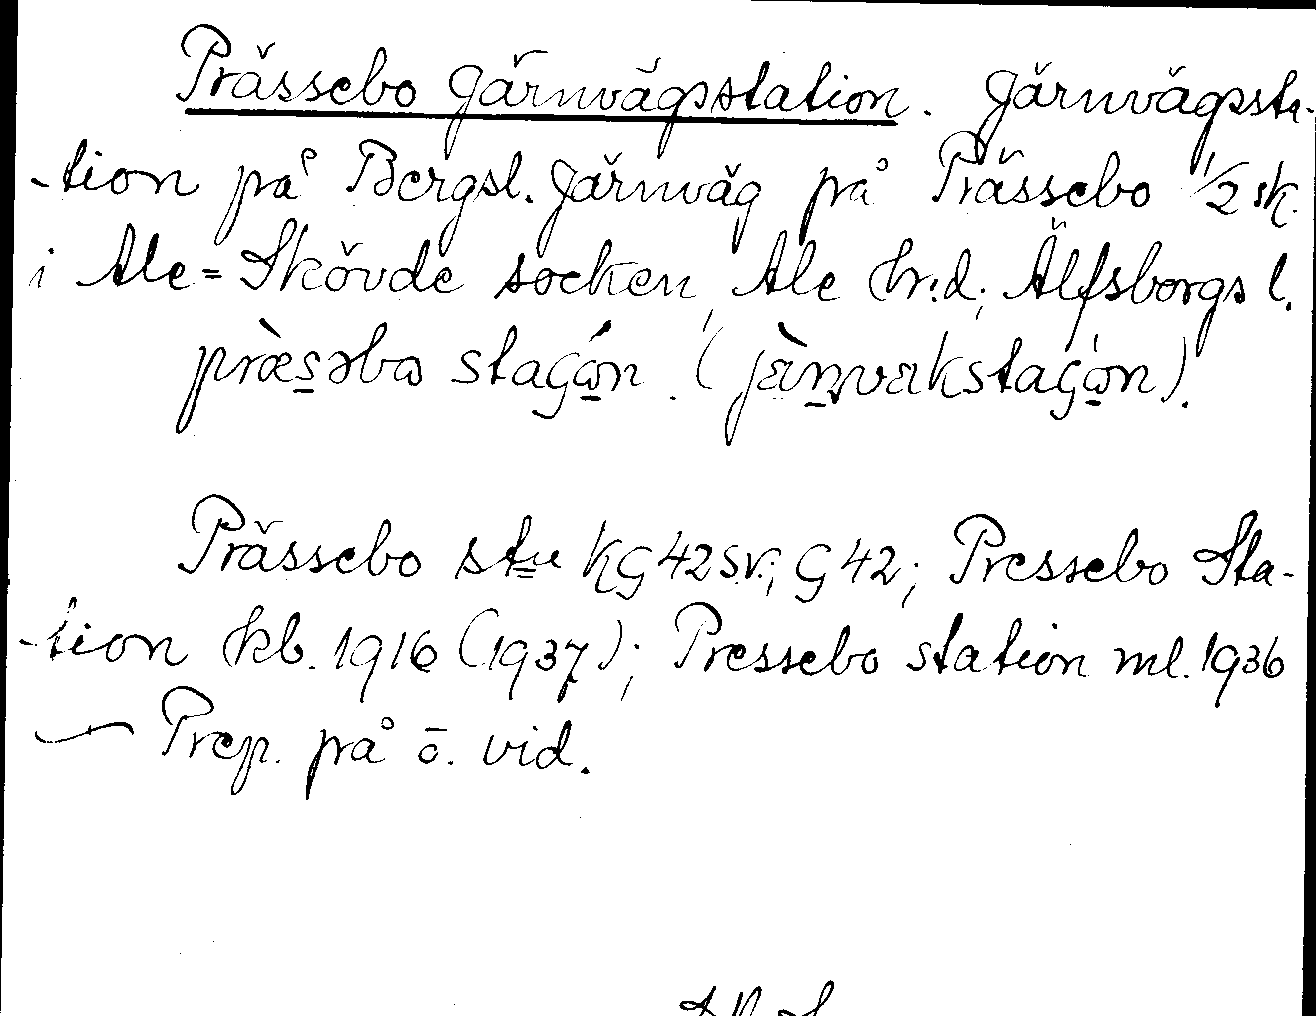 Prässebo Järnvägsstation. Järnvägssta-
-tion på Bergsl. Järnväg på Prässebo 1/2 sk.
i Ale=Skövde socken, Ale hr:d; Älfsborgs l.
præsəbω staʃωn. (jænvækstaʃωn).
Prässebo stn KG42sv; G42; Pressebo Sta-
-tion kb. 1916 (1937); Pressebo station ml. 1936
— Prep. på o. vid.